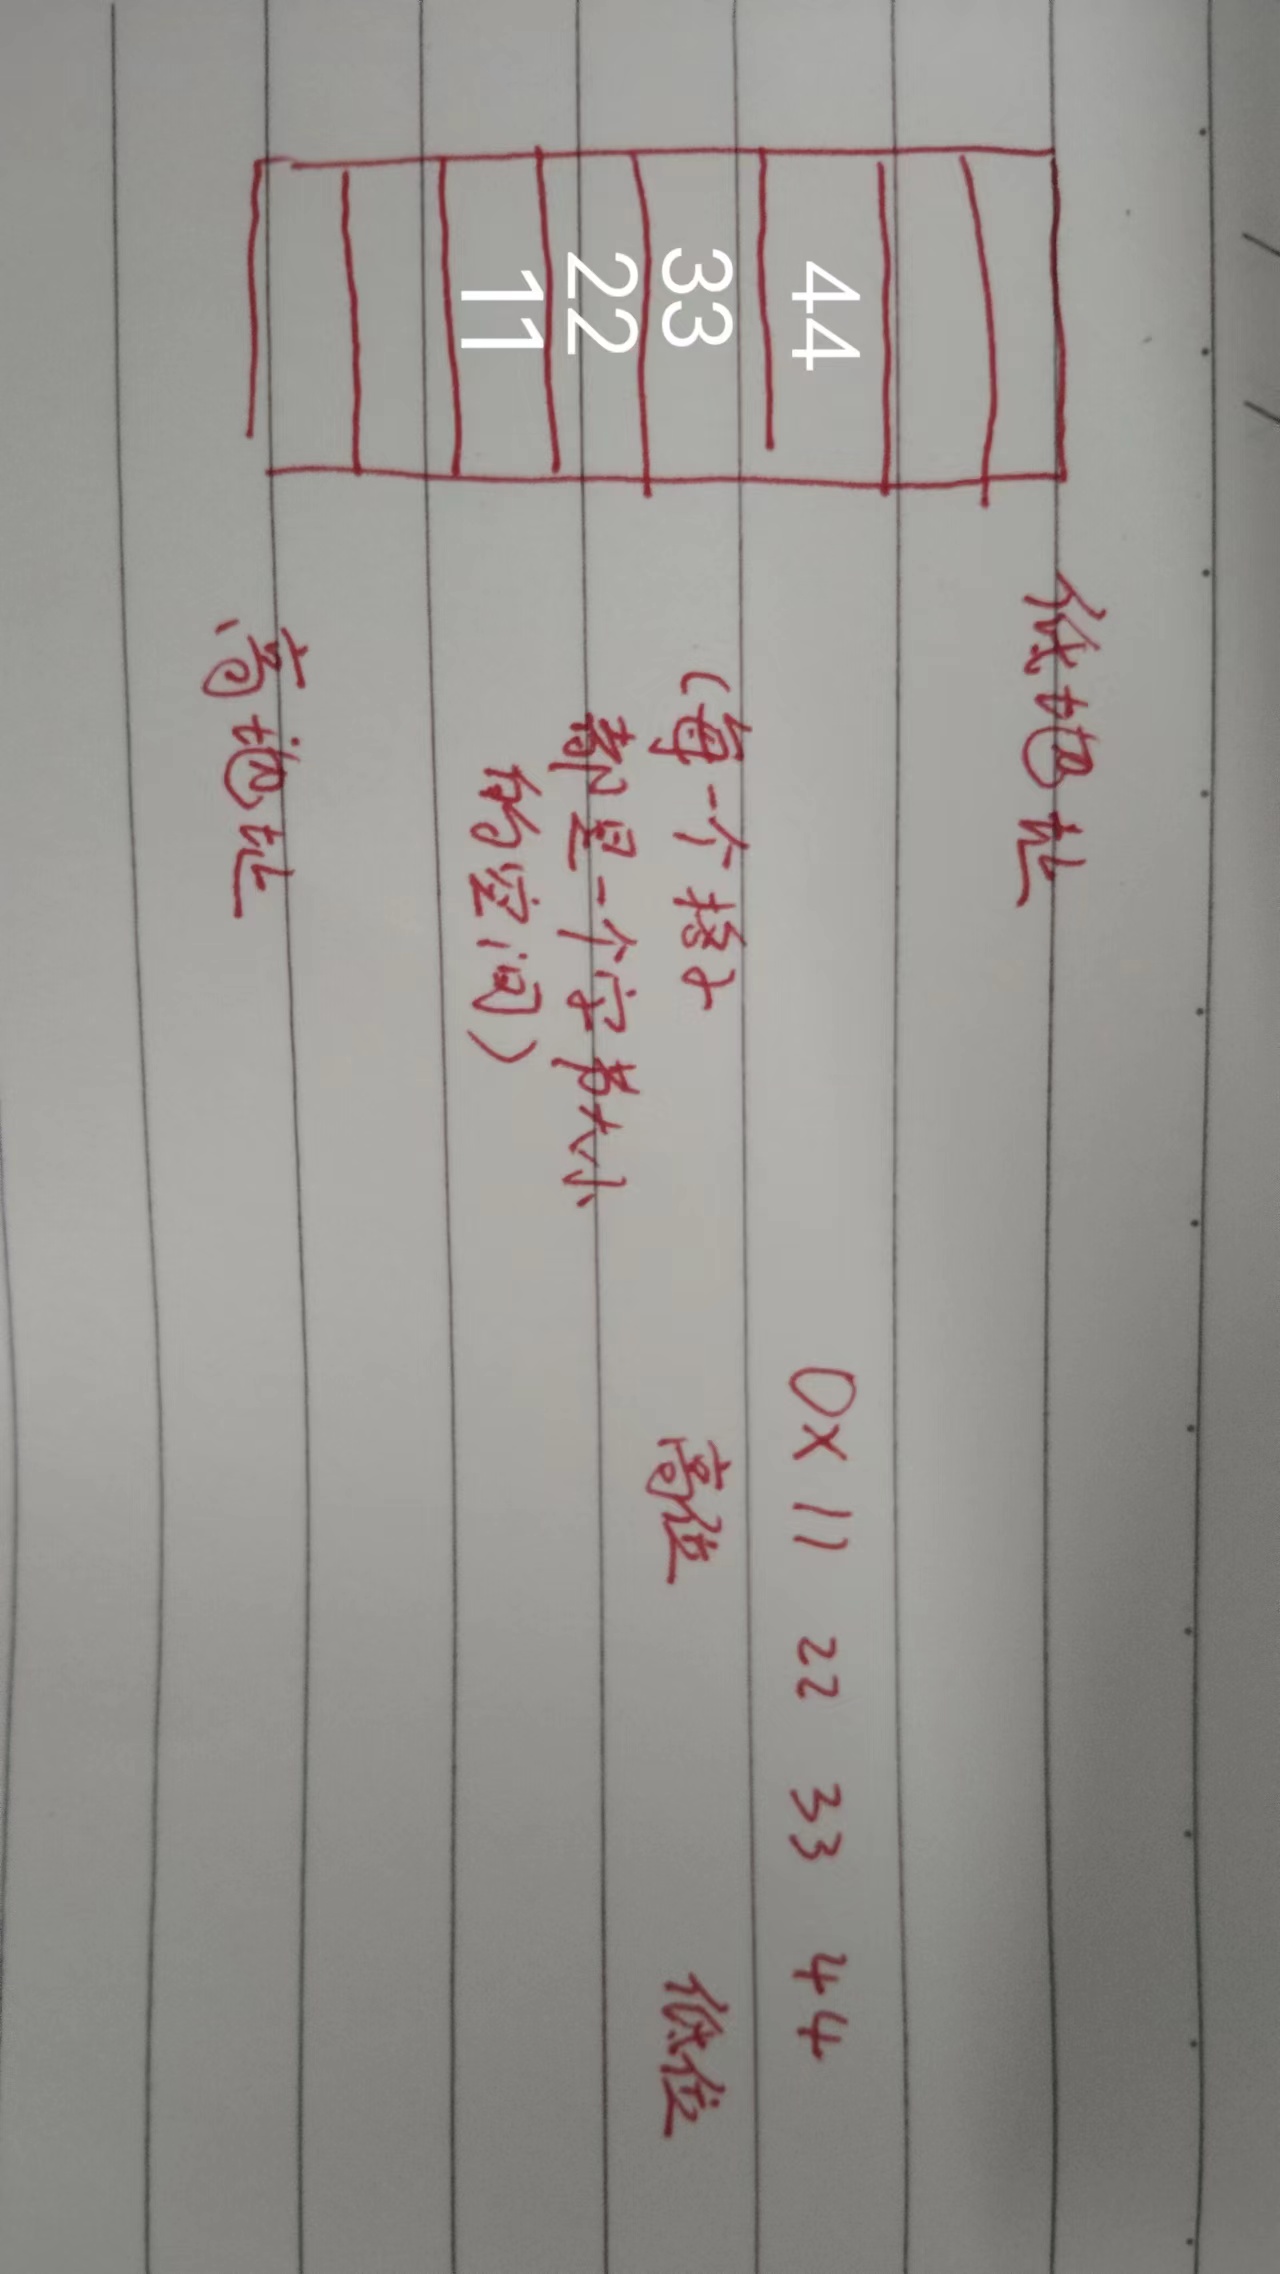 低地址
44
33
22
11
(每一个格子
都是一个字节大小
的空间)
高地址
0X 11 22 33 44
高位 低位